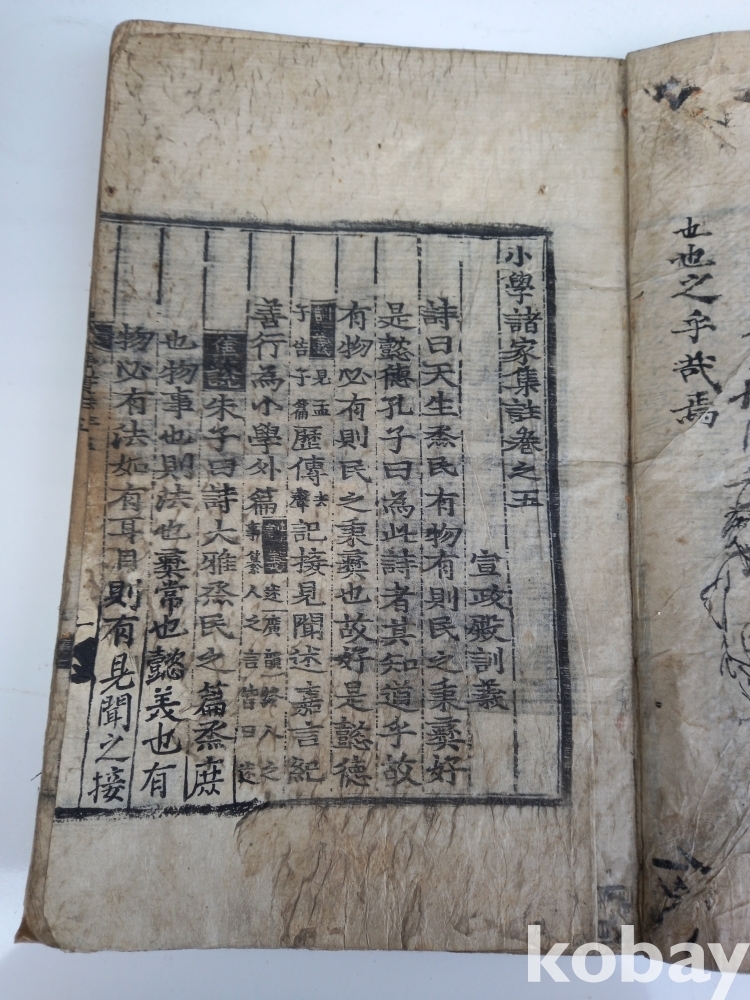 小學諸家集註卷之五
宣政殿訓義
詩曰天生烝民有物有則民之秉彝好
是懿德孔子曰為此詩者其知道乎故
有物必有則民之秉彝也故好是懿德
訓義見孟子告子篇歷傳去聲記接見聞述嘉言紀
善行為小學外篇訓義述廣韻人之事纂人之言皆曰述
集說朱子曰詩大雅烝民之篇烝庶
也物事也則法也彝常也懿美也有
物必有法如有耳目則有見聞之接
一
也也之乎哉焉
kobay